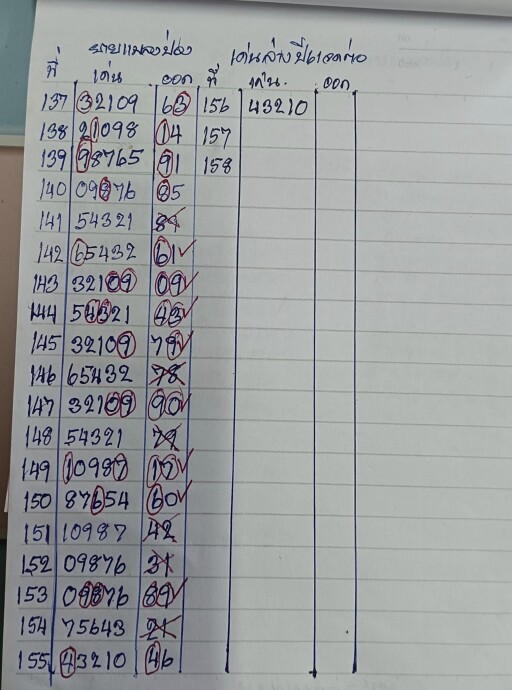 เด่นล่าง
ที่ เด่น ออก ที่ เด่น. ออก
137 32109 63 156 43210
138 21098 14 157
139 98765 91 158
140 09876 85
141 54321 89
142 65432 61
143 32109 09
144 54321 43
145 32109 79
146 65432 78
147 32109 90
148 54321 79
149 10987 17
150 87654 60
151 10987 42
152 09876 31
153 09876 89
154 75643 21
155 43210 46